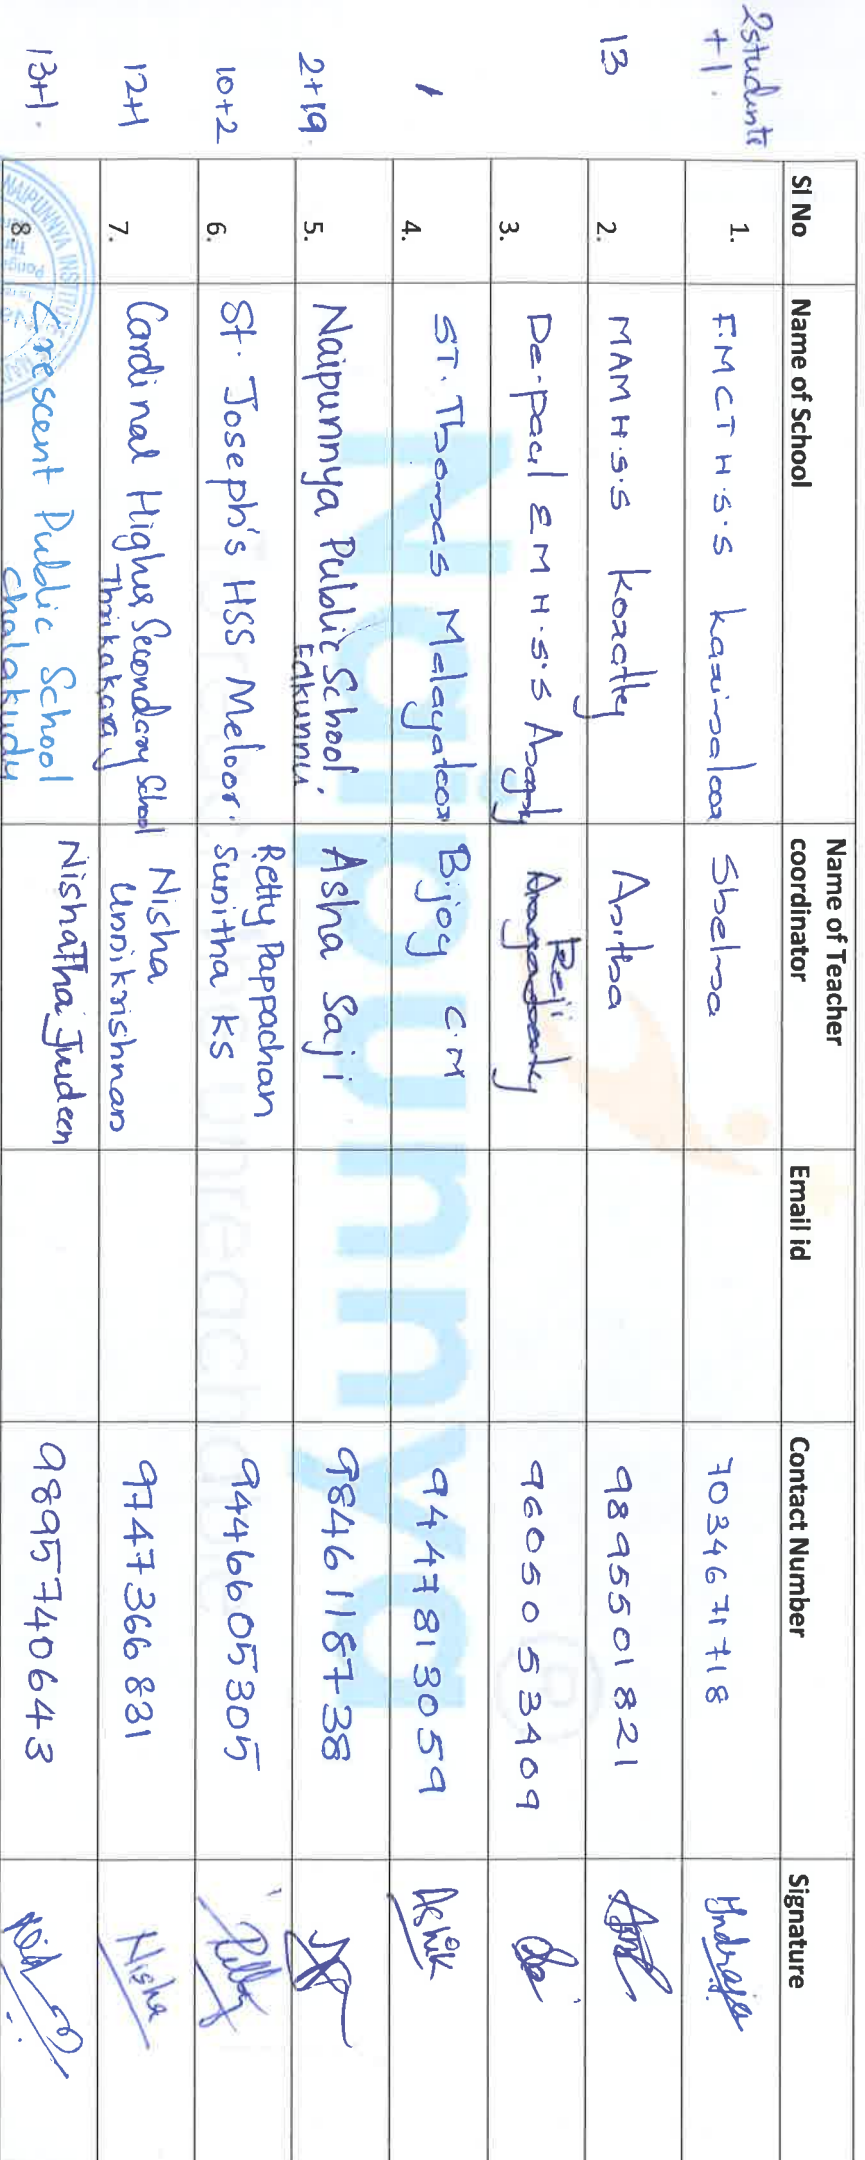 Sl No Name of School Name of Teacher coordinator Email id Contact Number Signature
2students +1. 1. F.M.C.T H.S.S Karimaloor Shelma 7034671718 Indraja
13 2. MAM H.S.S Koratty Anitha 9895501821
3. De-paul E M H.S.S Reji 9605053409
1 4. ST. Thomas Malayatoor Bijoy C.M 9447813059 Ashik
2+19. 5. Naipunnya Public School, Edkunnu. Asha Saji 9846118738
10+2 6. St. Joseph's HSS Meloor. Retty Pappachan Sunitha KS 9446605305
12+1 7. Cardinal Higher Secondary School Thrikakara Nisha Unnikrishnan 9747366831 Nisha
13+1. 8. Crescent Public School Chalakudy Nisha Thajudeen 9895740643
Naipunnya
unreachable
NAIPUNNYA INSTITUTE